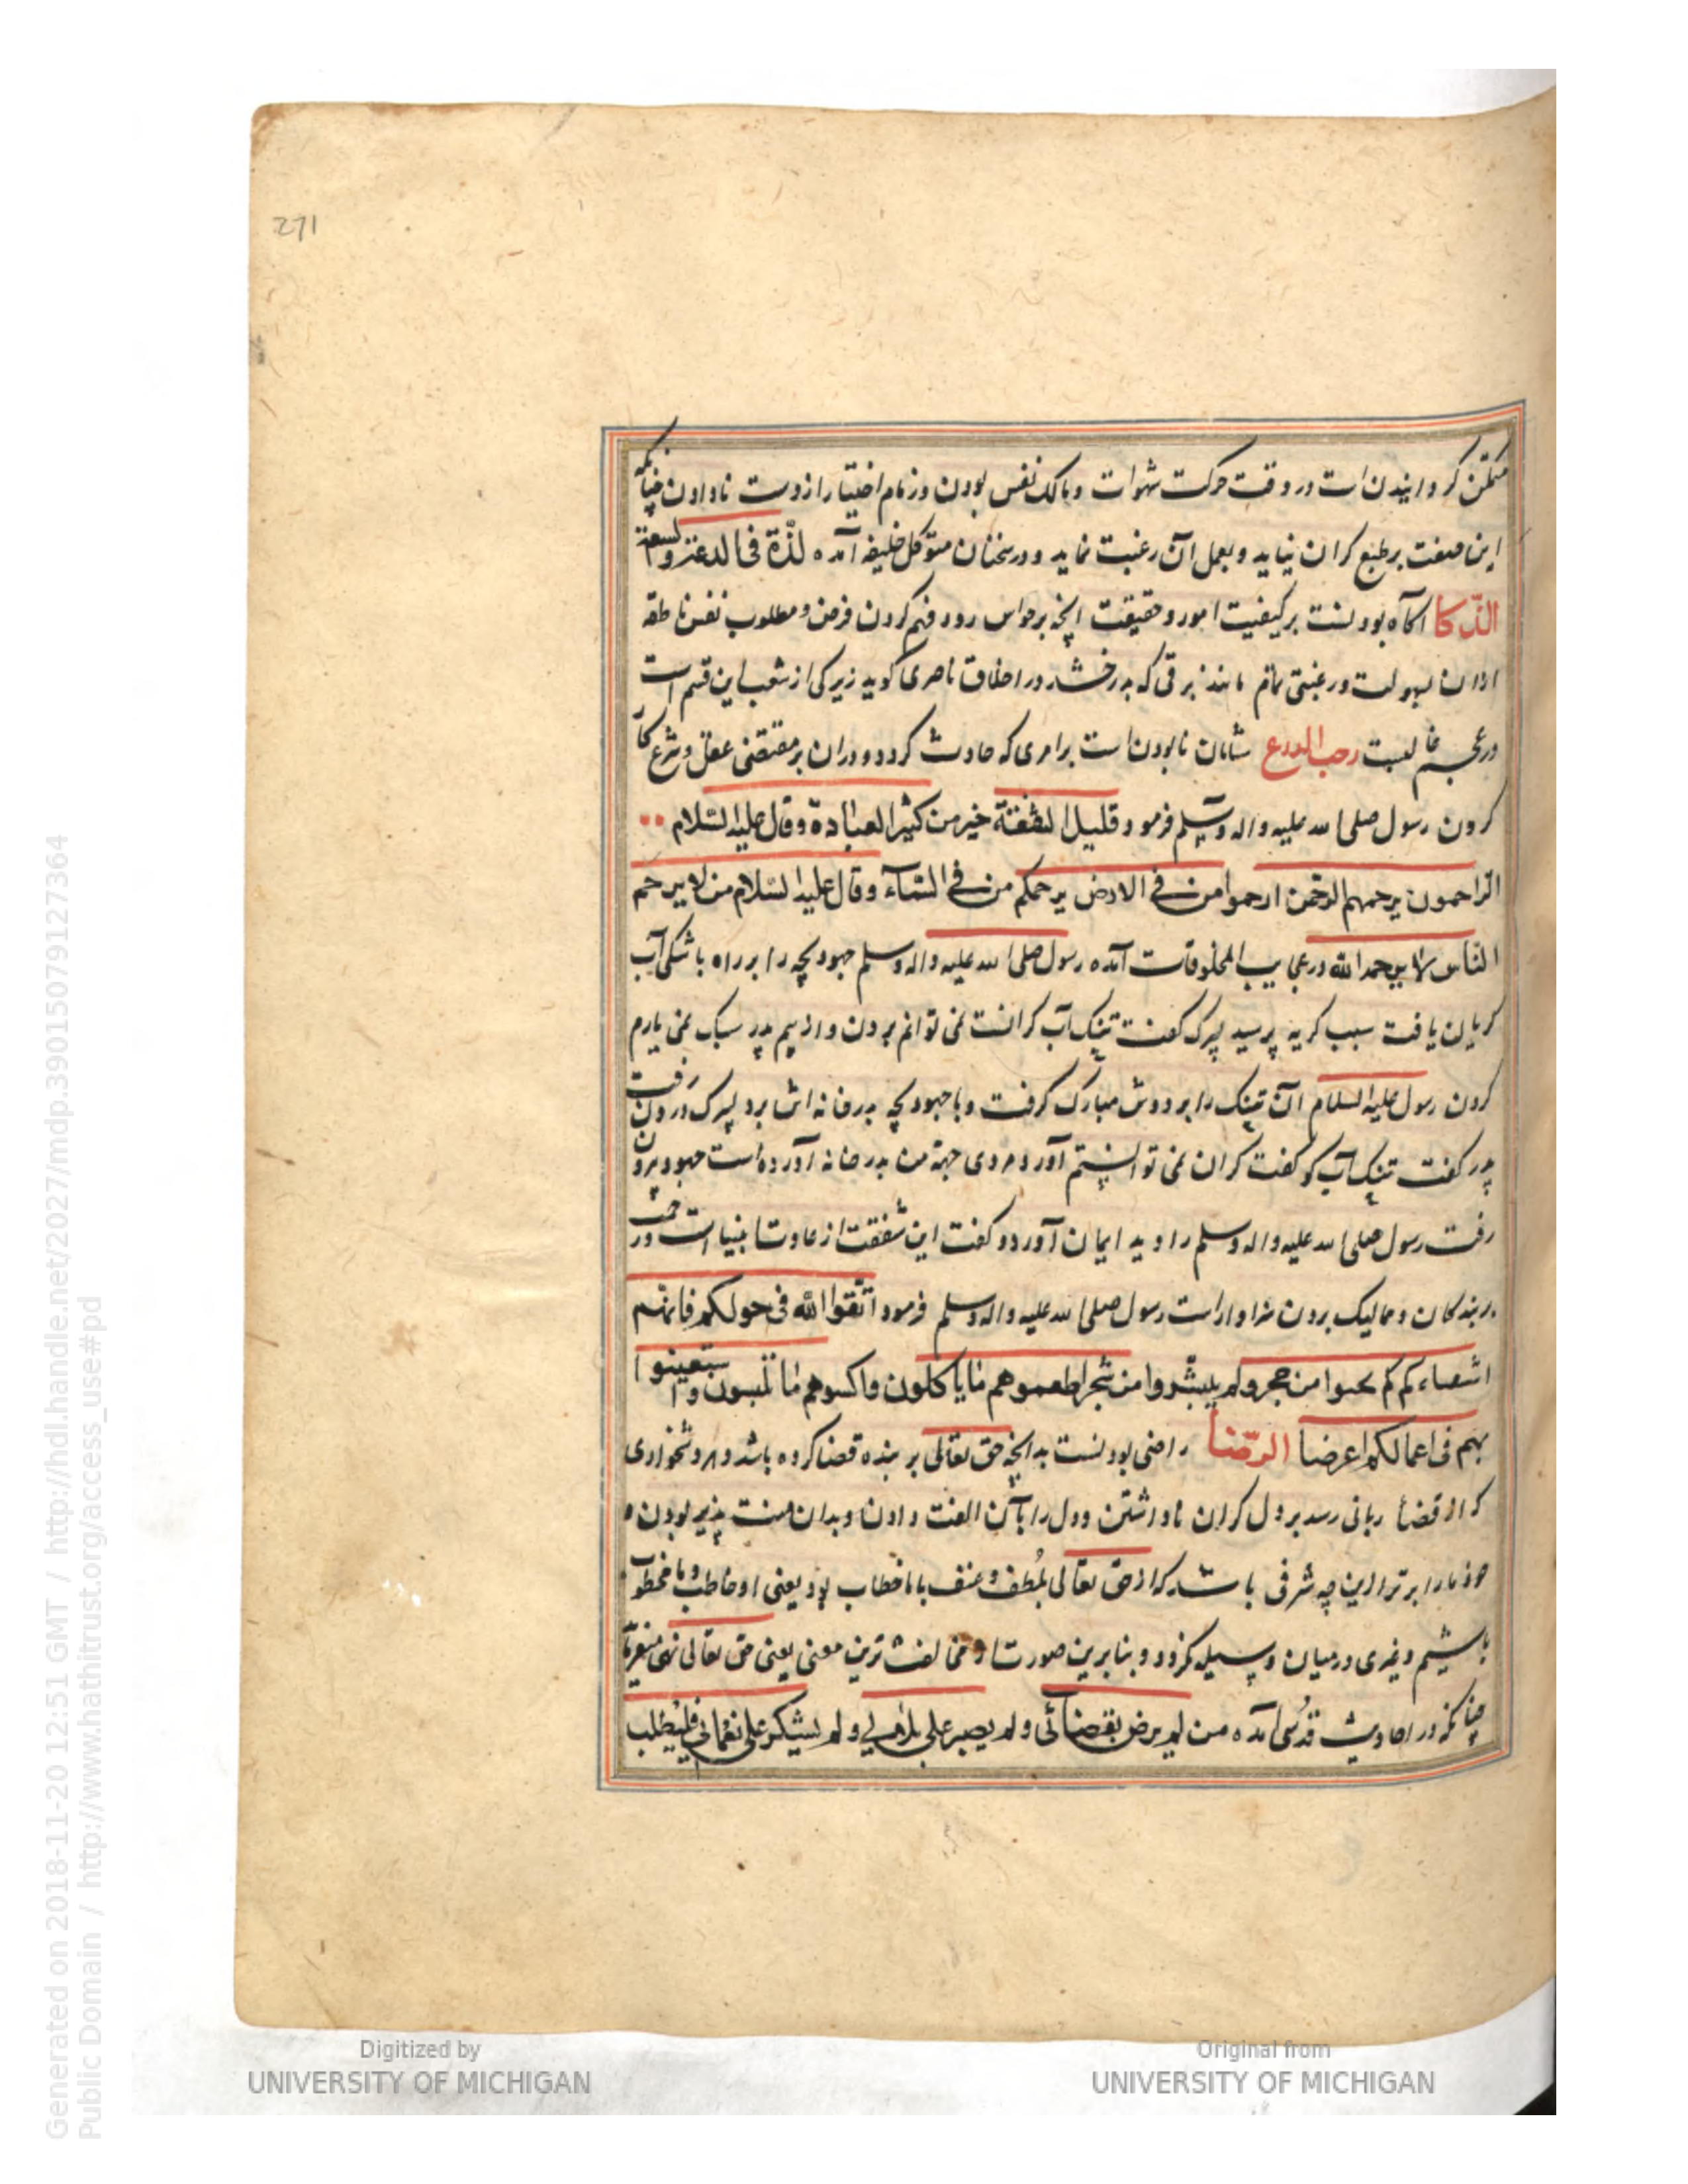 271
متمکن گردانیدن است در وقت حرکت شهوات و مالک نفس بودن و زمام اختیار از دست نادادن چنانکه
این صفت بر طبع گران نیاید و بعمل آن رغبت نماید و در سخنان متوکل خلیفه آمده لذّة فی الدعة والسعة
الذّکا آگاه بودنست بر کیفیت امور و حقیقت آنچه بر حواس رود و فهم کردن غرض و مطلوب نفس ناطقه
از آن بسهولت و رغبتی تمام مانند برقی که بدرخشد در اخلاق ناصری گوید زیرکی از شعب این قسم است
شادمان نابودن است بر امری که حادث گردد و در آن بر مقتضی عقل و شرع کار
کردن رسول صلی الله علیه واله وسلم فرمود قلیل الشفقة خیر من کثیر العبادة وقال علیه السّلام
الراحمون یرحمهم الرحمن ارحموا من فی الارض یرحمکم من فی السّمآء وقال علیه السّلام من لا یرحم
الناس لا یرحمه الله در عجایب المخلوقات آمده رسول صلی الله علیه واله وسلم جهودبچه را بر راه با مشکی آب
گریان یافت سبب گریه پرسید پسرک گفت تنک آب گرانست نمی توانم بردن و از بیم پدر سبک نمی یارم
کردن رسول علیه السلام آن تنک را بر دوش مبارک گرفت و با جهودبچه بدر خانه اش برد پسرک درون رفت
پدر گفت تنک آب کو گفت گران نمی توانستم آورد مردی جهة من بدر خانه آورده است جهود برون
رفت رسول صلی الله علیه واله وسلم را دید ایمان آورد و گفت این شفقت از عادت انبیا است
بر بندگان و ممالیک بردن سزاوار است رسول صلی الله علیه واله وسلم فرمود اتّقوا الله فی خولکم فانّهم
اشقاءکم لم ینحتوا من حجر ولم ینشروا من شجر اطعموهم ممّا یاکلون واکسوهم ممّا تلبسون واستعینوا
بهم فی اعمالکم الرّضا راضی بودنست بدانچه حق تعالی بر بنده قضا کرده باشد و هر دشخواری
که از قضاء ربانی رسد بر دل گران ناداشتن و دل را بآن الفت دادن و بدان منت پذیر بودن
خود ما را برتر ازین چه شرفی باشد که از حق تعالی بلطف و عنف با ما خطاب بود یعنی او مخاطب و ما مخطوب
باشیم و غیری در میان وسیله نگردد و بنابرین صورت مخالفت ترین معنی یعنی حق تعالی نهی
چنانکه در احادیث قدسی آمده من لم یرض بقضائی ولم یصبر علی بلائی ولم یشکر علی نعمائی فلیطلب
Generated on 2018-11-20 12:51 GMT / http://hdl.handle.net/2027/mdp.39015079127364
Public Domain / http://www.hathitrust.org/access_use#pd
Digitized by
UNIVERSITY OF MICHIGAN
Original from
UNIVERSITY OF MICHIGAN